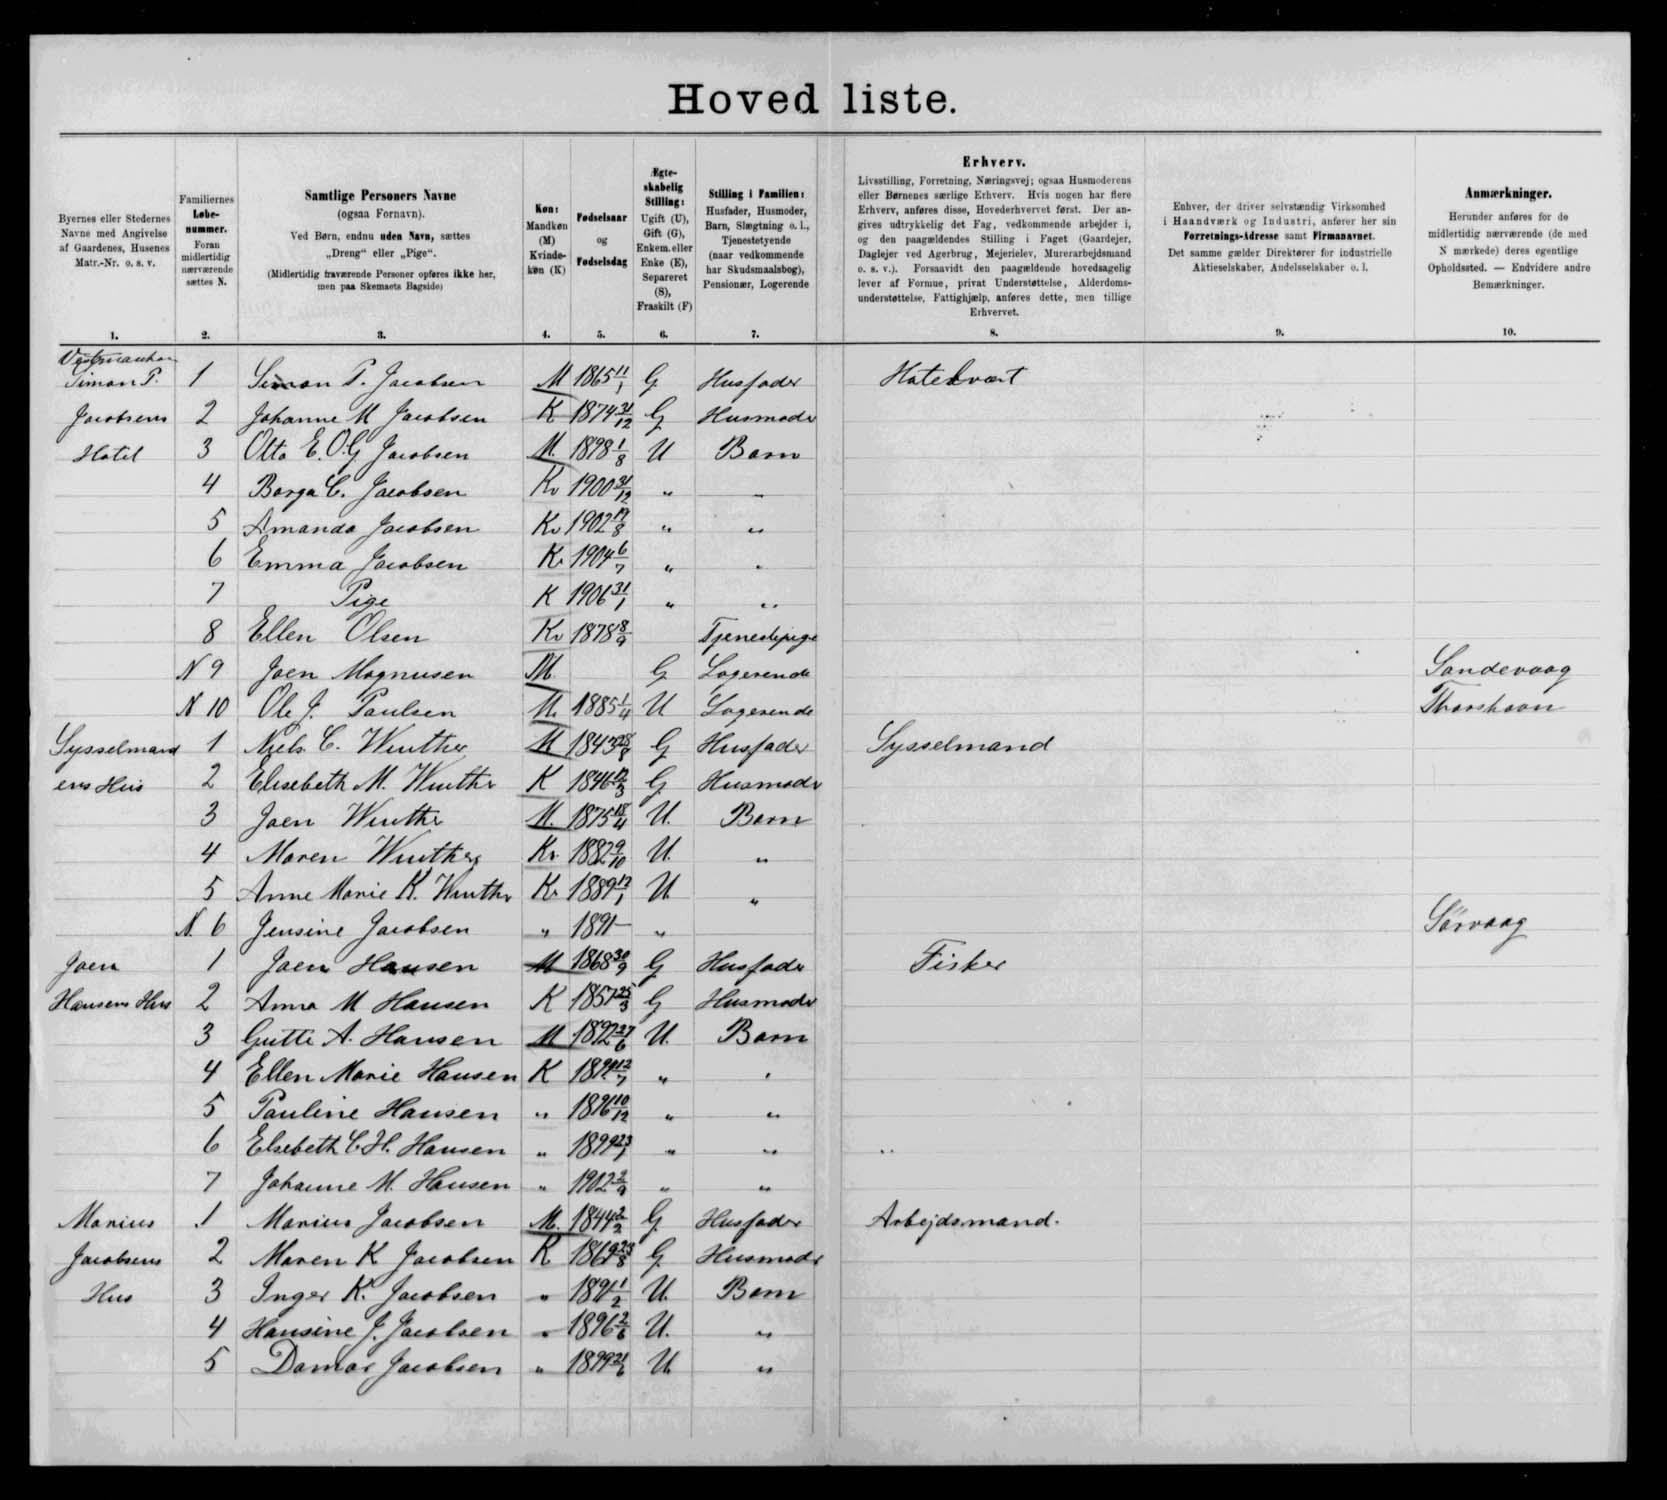 Hovedliste.
Byernes eller Stedernes Navne med Angivelse af Gaardenes, Husenes Matr.-Nr. o. s. v.
Familiernes Løbenummer. Foran midlertidig nærværende sættes N.
Samtlige Personers Navne
(ogsaa Fornavn).
Ved Børn, endnu uden Navn, sættes „Dreng“ eller „Pige“.
(Midlertidig fraværende Personer opføres ikke her, men paa Skemaets Bagside)
Køn: Mandkøn (M) Kvindekøn (K)
Fødselsaar og Fødselsdag
Ægteskabelig Stilling: Ugift (U), Gift (G), Enkem. eller Enke (E), Separeret (S), Fraskilt (F)
Stilling i Familien: Husfader, Husmoder, Barn, Slægtning o. l., Tjenestetyende (naar vedkommende har Skudsmaalsbog), Pensionær, Logerende
Erhverv.
Livsstilling, Forretning, Næringsvej; ogsaa Husmoderens eller Børnenes særlige Erhverv. Hvis nogen har flere Erhverv, anføres disse, Hovederhvervet først. Der angives udtrykkelig det Fag, vedkommende arbejder i, og den paagældendes Stilling i Faget (Gaardejer, Daglejer ved Agerbrug, Mejerielev, Murerarbejdsmand o. s. v.). Forsaavidt den paagældende hovedsagelig lever af Formue, privat Understøttelse, Alderdomsunderstøttelse, Fattighjælp, anføres dette, men tillige Erhvervet.
Enhver, der driver selvstændig Virksomhed i Haandværk og Industri, anfører her sin Forretnings-Adresse samt Firmanavnet. Det samme gælder Direktører for industrielle Aktieselskaber, Andelsselskaber o. l.
Anmærkninger.
Herunder anføres for de midlertidig nærværende (de med N mærkede) deres egentlige Opholdssted. — Endvidere andre Bemærkninger.
1. 2. 3. 4. 5. 6. 7. 8. 9. 10.
Vestmanhavn
Simon P. 1 Simon P. Jacobsen M 1865 11/1 G Husfader Hotelvært
Jacobsens 2 Johanne M Jacobsen K 1874 31/12 G Husmoder
Hotel 3 Otto E. O. G Jacobsen M. 1898 1/8 U Barn
4 Borga C. Jacobsen Kv 1900 31/12 " "
5 Amanda Jacobsen Kv 1902 19/8 " "
6 Emma Jacobsen Kv 1904 6/7 " "
7 Pige K 1906 31/1 " "
8 Ellen Olsen Kv 1878 18/9 Tjenestepige
N 9 Joen Magnusen M. G Logerende Sandevaag
N 10 Ole J. Paulsen M. 1885 1/4 U Logerende Thorshavn
Sysselmand 1 Niels C. Winther M 1843 28/8 G Husfader Sysselmand
ens Hus 2 Elisebeth M. Winther K 1846 12/3 G Husmoder
3 Joen Winther M. 1875 18/4 U. Barn
4 Maren Winther Kv. 1882 9/10 U. "
5 Anne Marie K. Winther Kv 1889 12/1 U. "
N. 6 Jensine Jacobsen " 1891 — " Sörvaag
Joen 1 Joen Hansen M 1868 30/9 G Husfader Fisker
Hansens Hus 2 Anna M Hansen K 1857 25/3 G Husmoder
3 Gutte A. Hansen M 1892 27/6 U. Barn
4 Ellen Marie Hansen K 1894 12/7 " "
5 Pauline Hansen " 1896 10/12 " "
6 Elsebeth C. H. Hansen " 1899 23/7 " "
7 Johanne M. Hansen " 1902 2/9 " "
Marius 1 Marius Jacobsen M. 1844 2/2 G. Husfader Arbejdsmand.
Jacobsens 2 Maren K Jacobsen K 1869 23/8 G Husmoder
Hus 3 Inger K. Jacobsen " 1891 1/2 U. Barn
4 Hansine J. Jacobsen " 1896 2/6 U. "
5 Damar Jacobsen " 1899 21/6 U. "